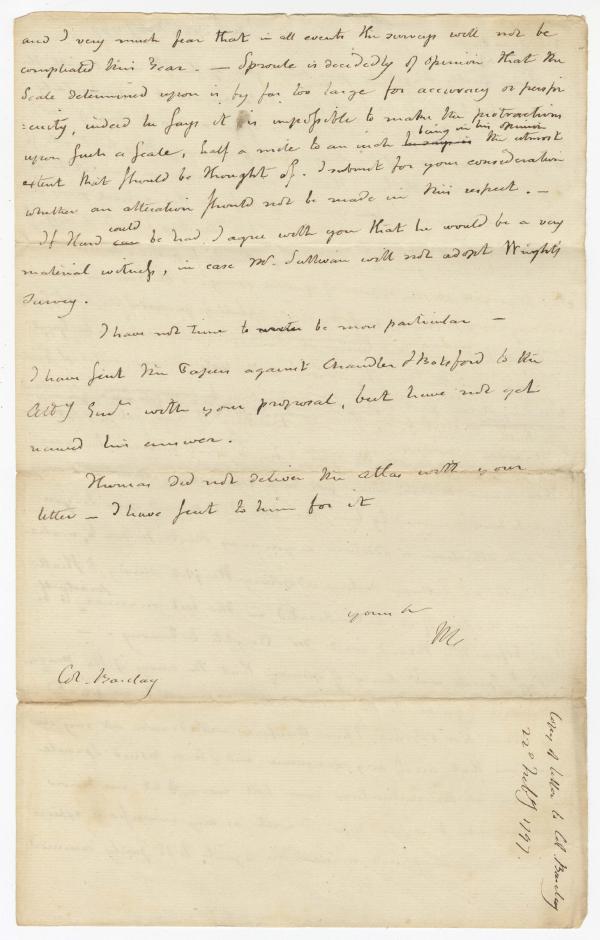 and I very much fear that in all events the surveys will not be
compleated this Year. — Sproule is decidedly of opinion that the
Scale determined upon is by far too large for accuracy or perspi
=cuity, indeed he says it is impossible to make the protractions
upon such a scale, half a mile to an inch being in his opinion the utmost
extent that should be thought of. I submit for your consideration
whether an alteration should not be made in this respect. —
If Hard could be had I agree with you that he would be a very
material witness, in case Mr. Sullivan will not adopt Wright's
Survey.
I have not time to be more particular —
I have sent the Papers against Chandler & Botsford to the
Atty Genl. with your proposal, but have not yet
received his answer.
Thomas did not deliver the atlas with your
letter — I have sent to him for it
yours &c
Col. Barclay
Copy of letter to Col. Barclay
22d Feby 1797.